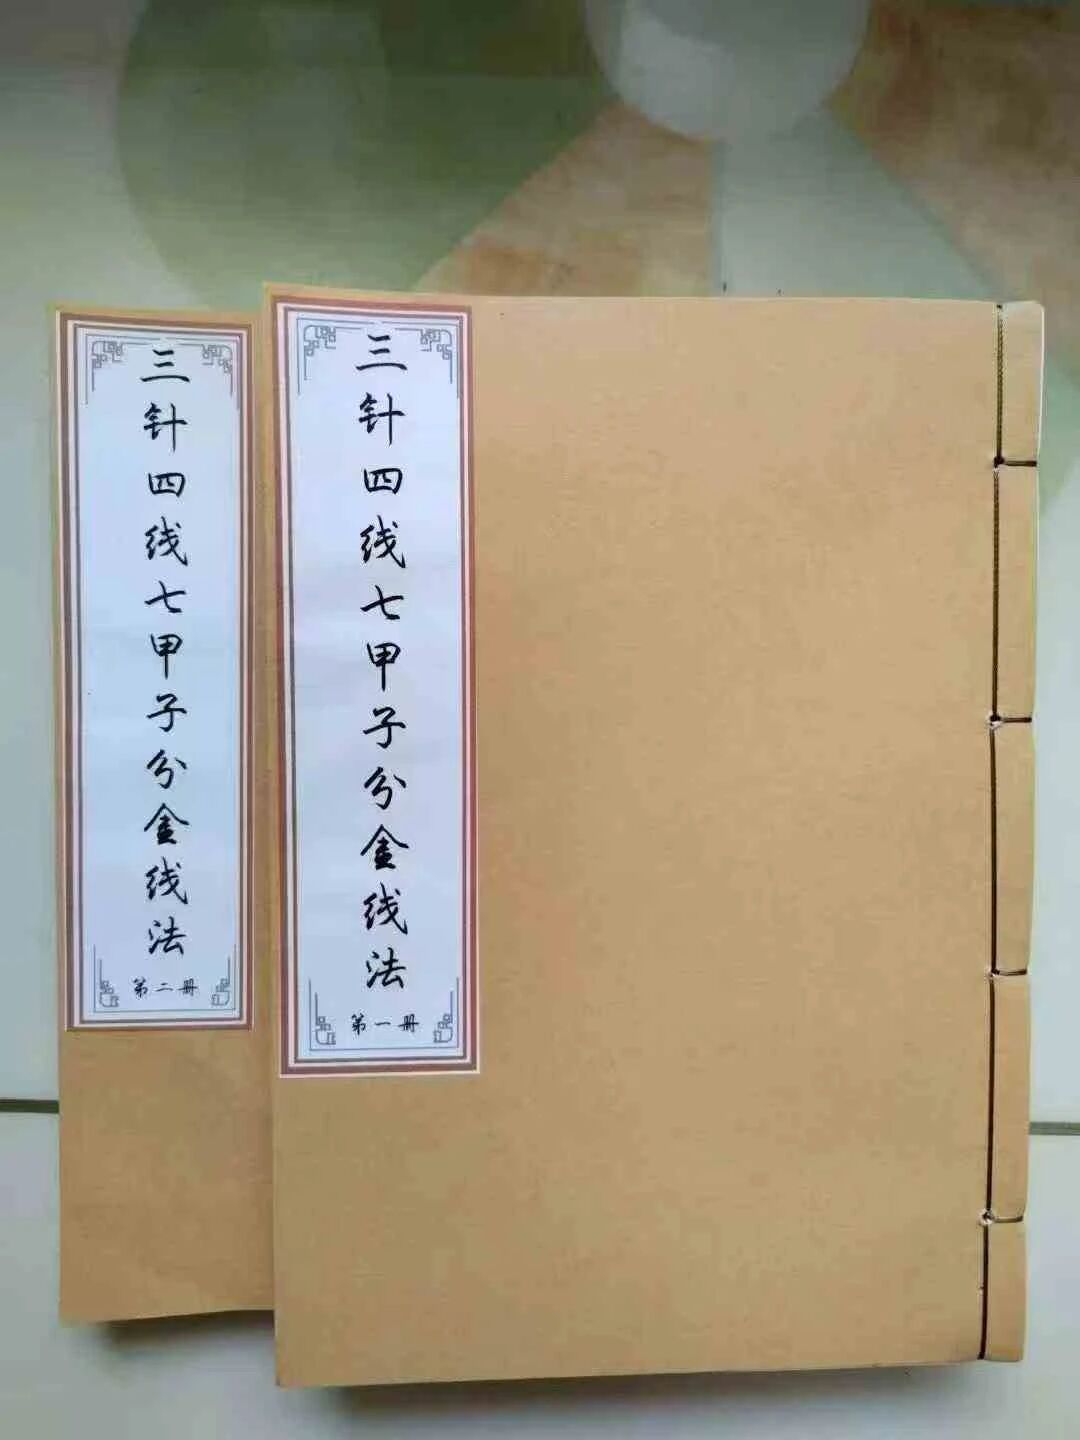 三针四线七甲子分金线法
第一册
三针四线七甲子分金线法
第二册